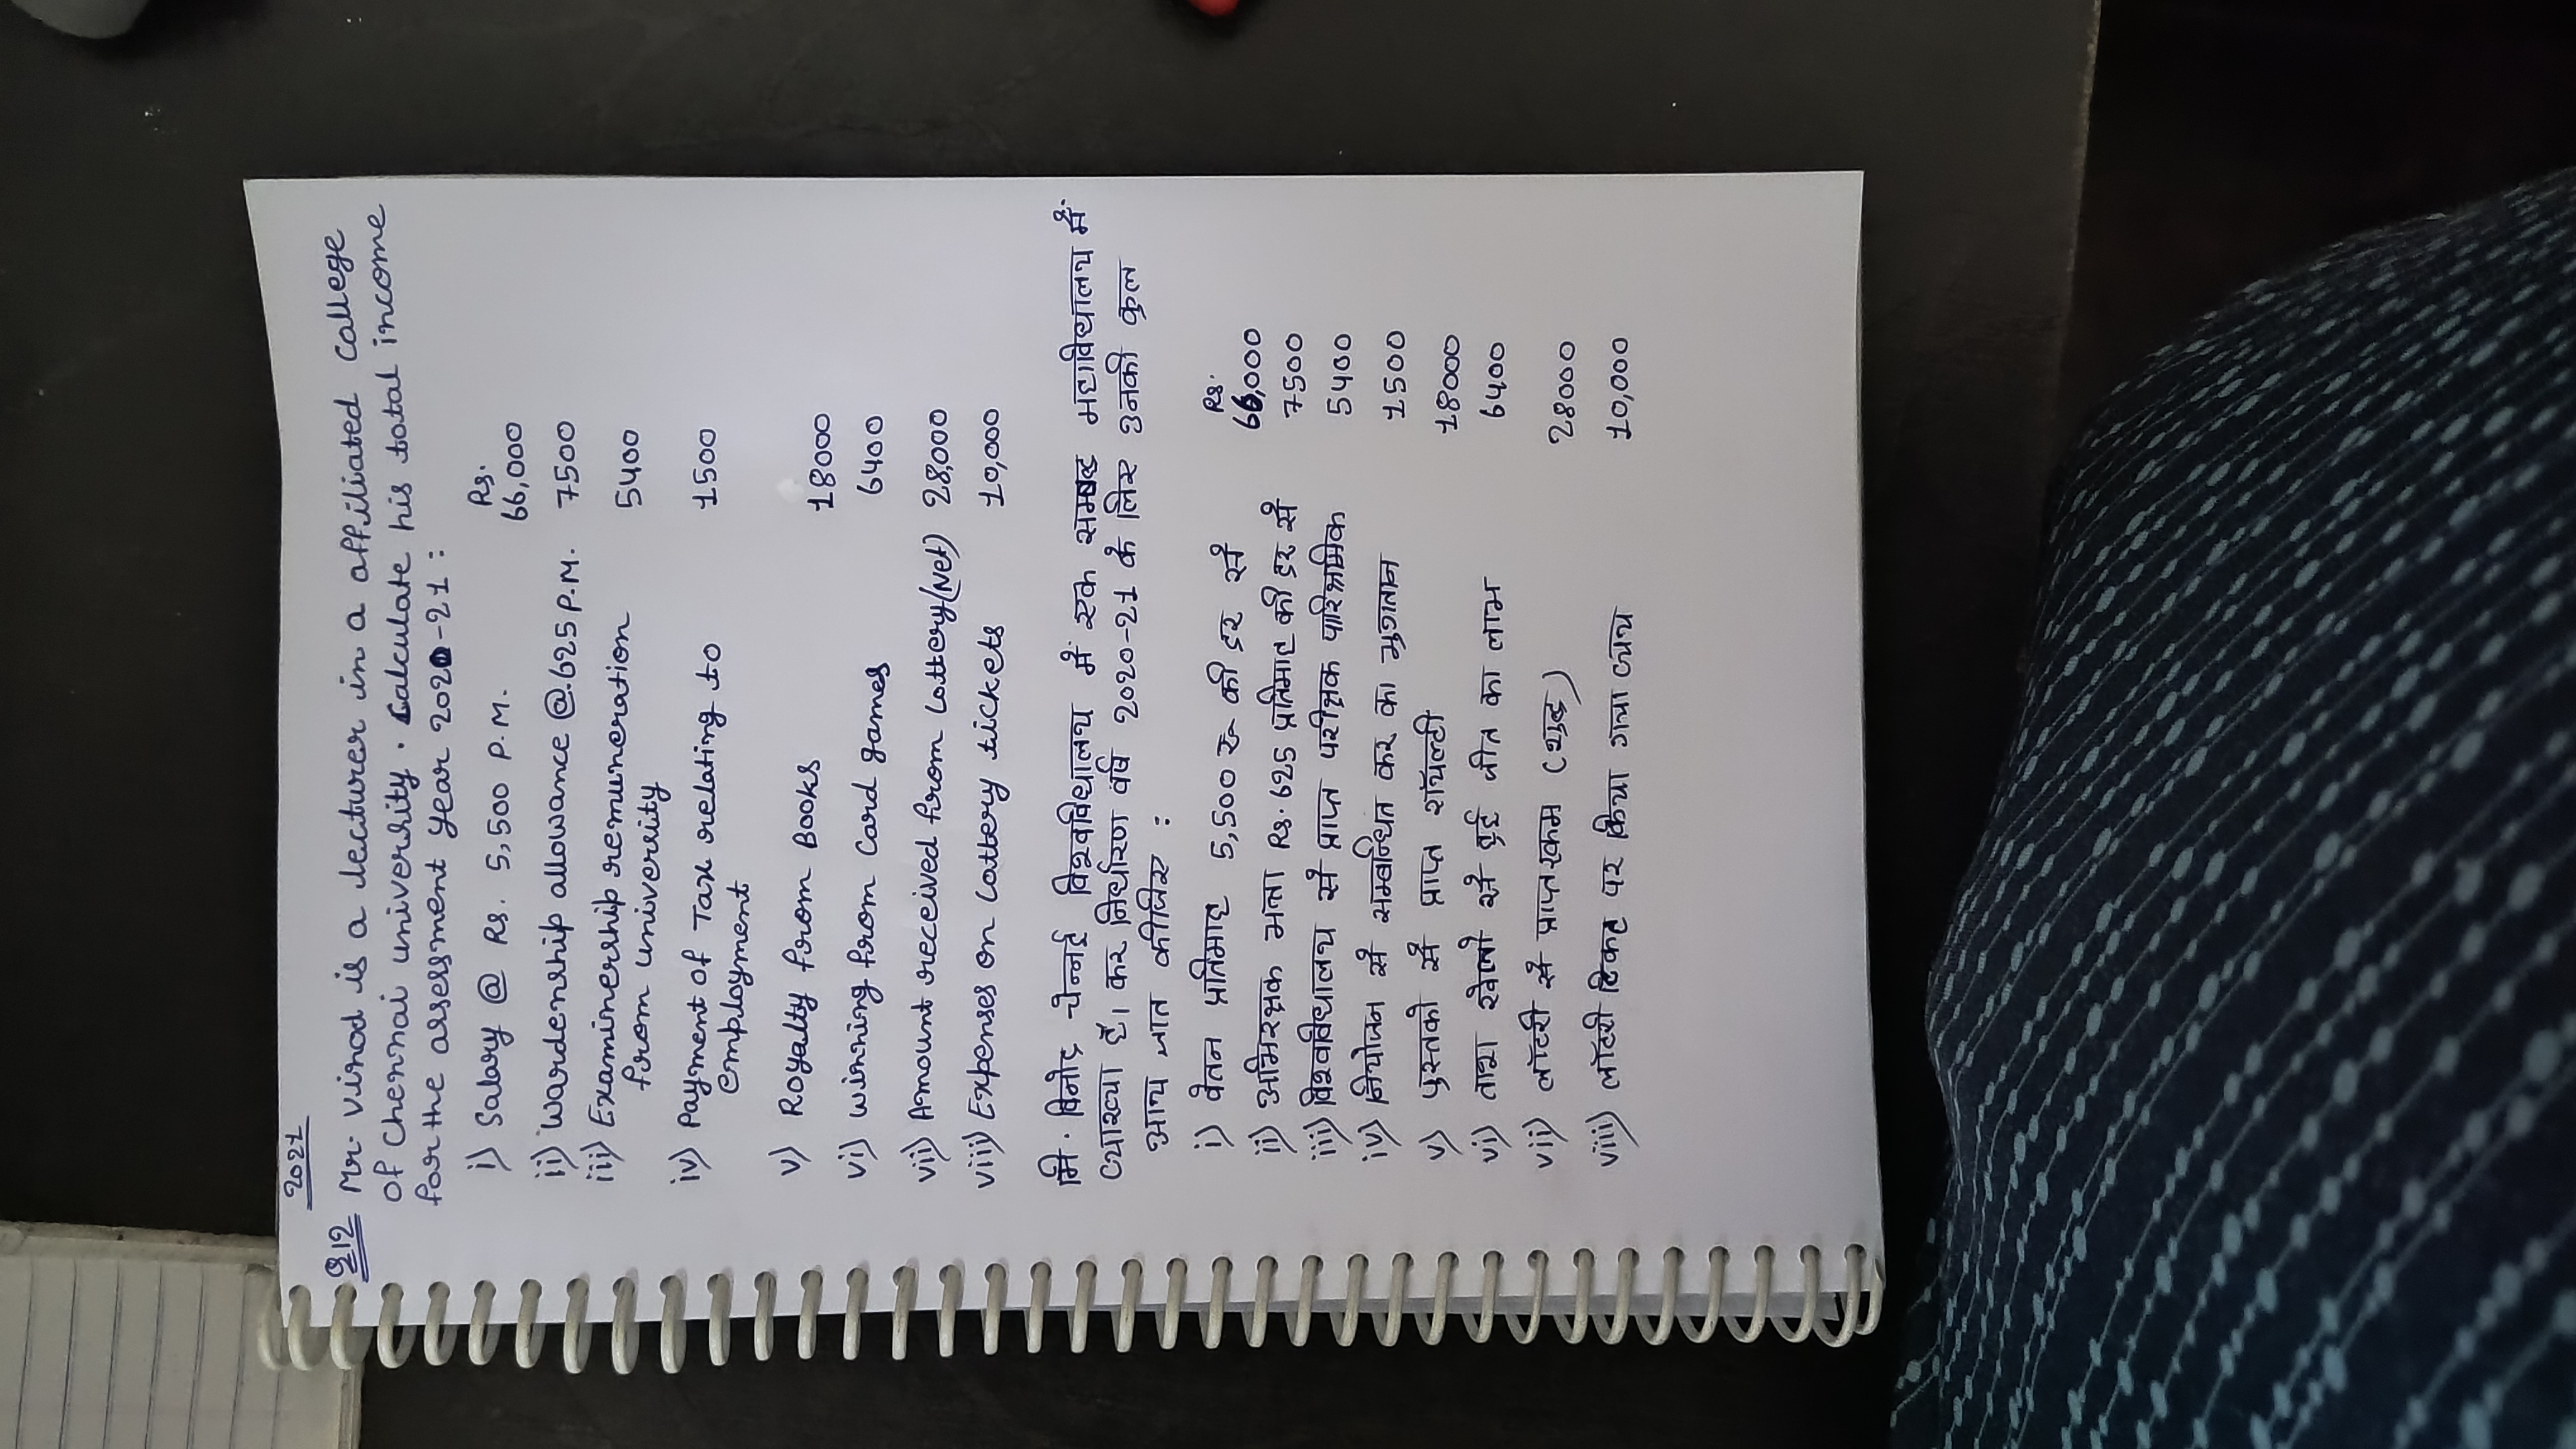 2021
Q12 Mr. Vinod is a lecturer in a affiliated callege
of Chennai university. Calculate his total income
for the assessment year 2020-21 :
i) Salary @ Rs. 5,500 P.M.
Rs.
66,000
ii) Wardenship allowance @.625 P.M. 7500
iii) Examinership remuneration
from university
5400
iv) Payment of Tax relating to
employment
1500
v) Royalty from Books 18000
vi) Winning from Card games 6400
vii) Amount received from Lottery(Net) 28,000
viii) Expenses on Lottery tickets 10,000
मि. विनोद चेन्नई विश्वविधालय में एक सम्बद्ध महाविधालय में
व्याख्या है। कर निर्धारण वर्ष 2020-21 के लिए उनकी कुल
आय ज्ञात कीजिए :
i) वेतन प्रतिमाह 5,500 रू की दर से
Rs.
66,000
ii) अभिरक्षक भत्ता Rs. 625 प्रतिमाह की दर से 7500
iii) विश्वविधालय से प्राप्त परीक्षक पारिश्रमिक 5400
iv) नियोजन से सम्बन्धित कर का भुगतान 1500
v) पुस्तको से प्राप्त रॉयल्टी 18000
vi) ताश खेलो से हुई जीत का लाभ 6400
vii) लॉटरी से प्राप्त रकम (शुद्ध) 28000
viii) लॉटरी टिकट पर किया गया व्यय 10,000